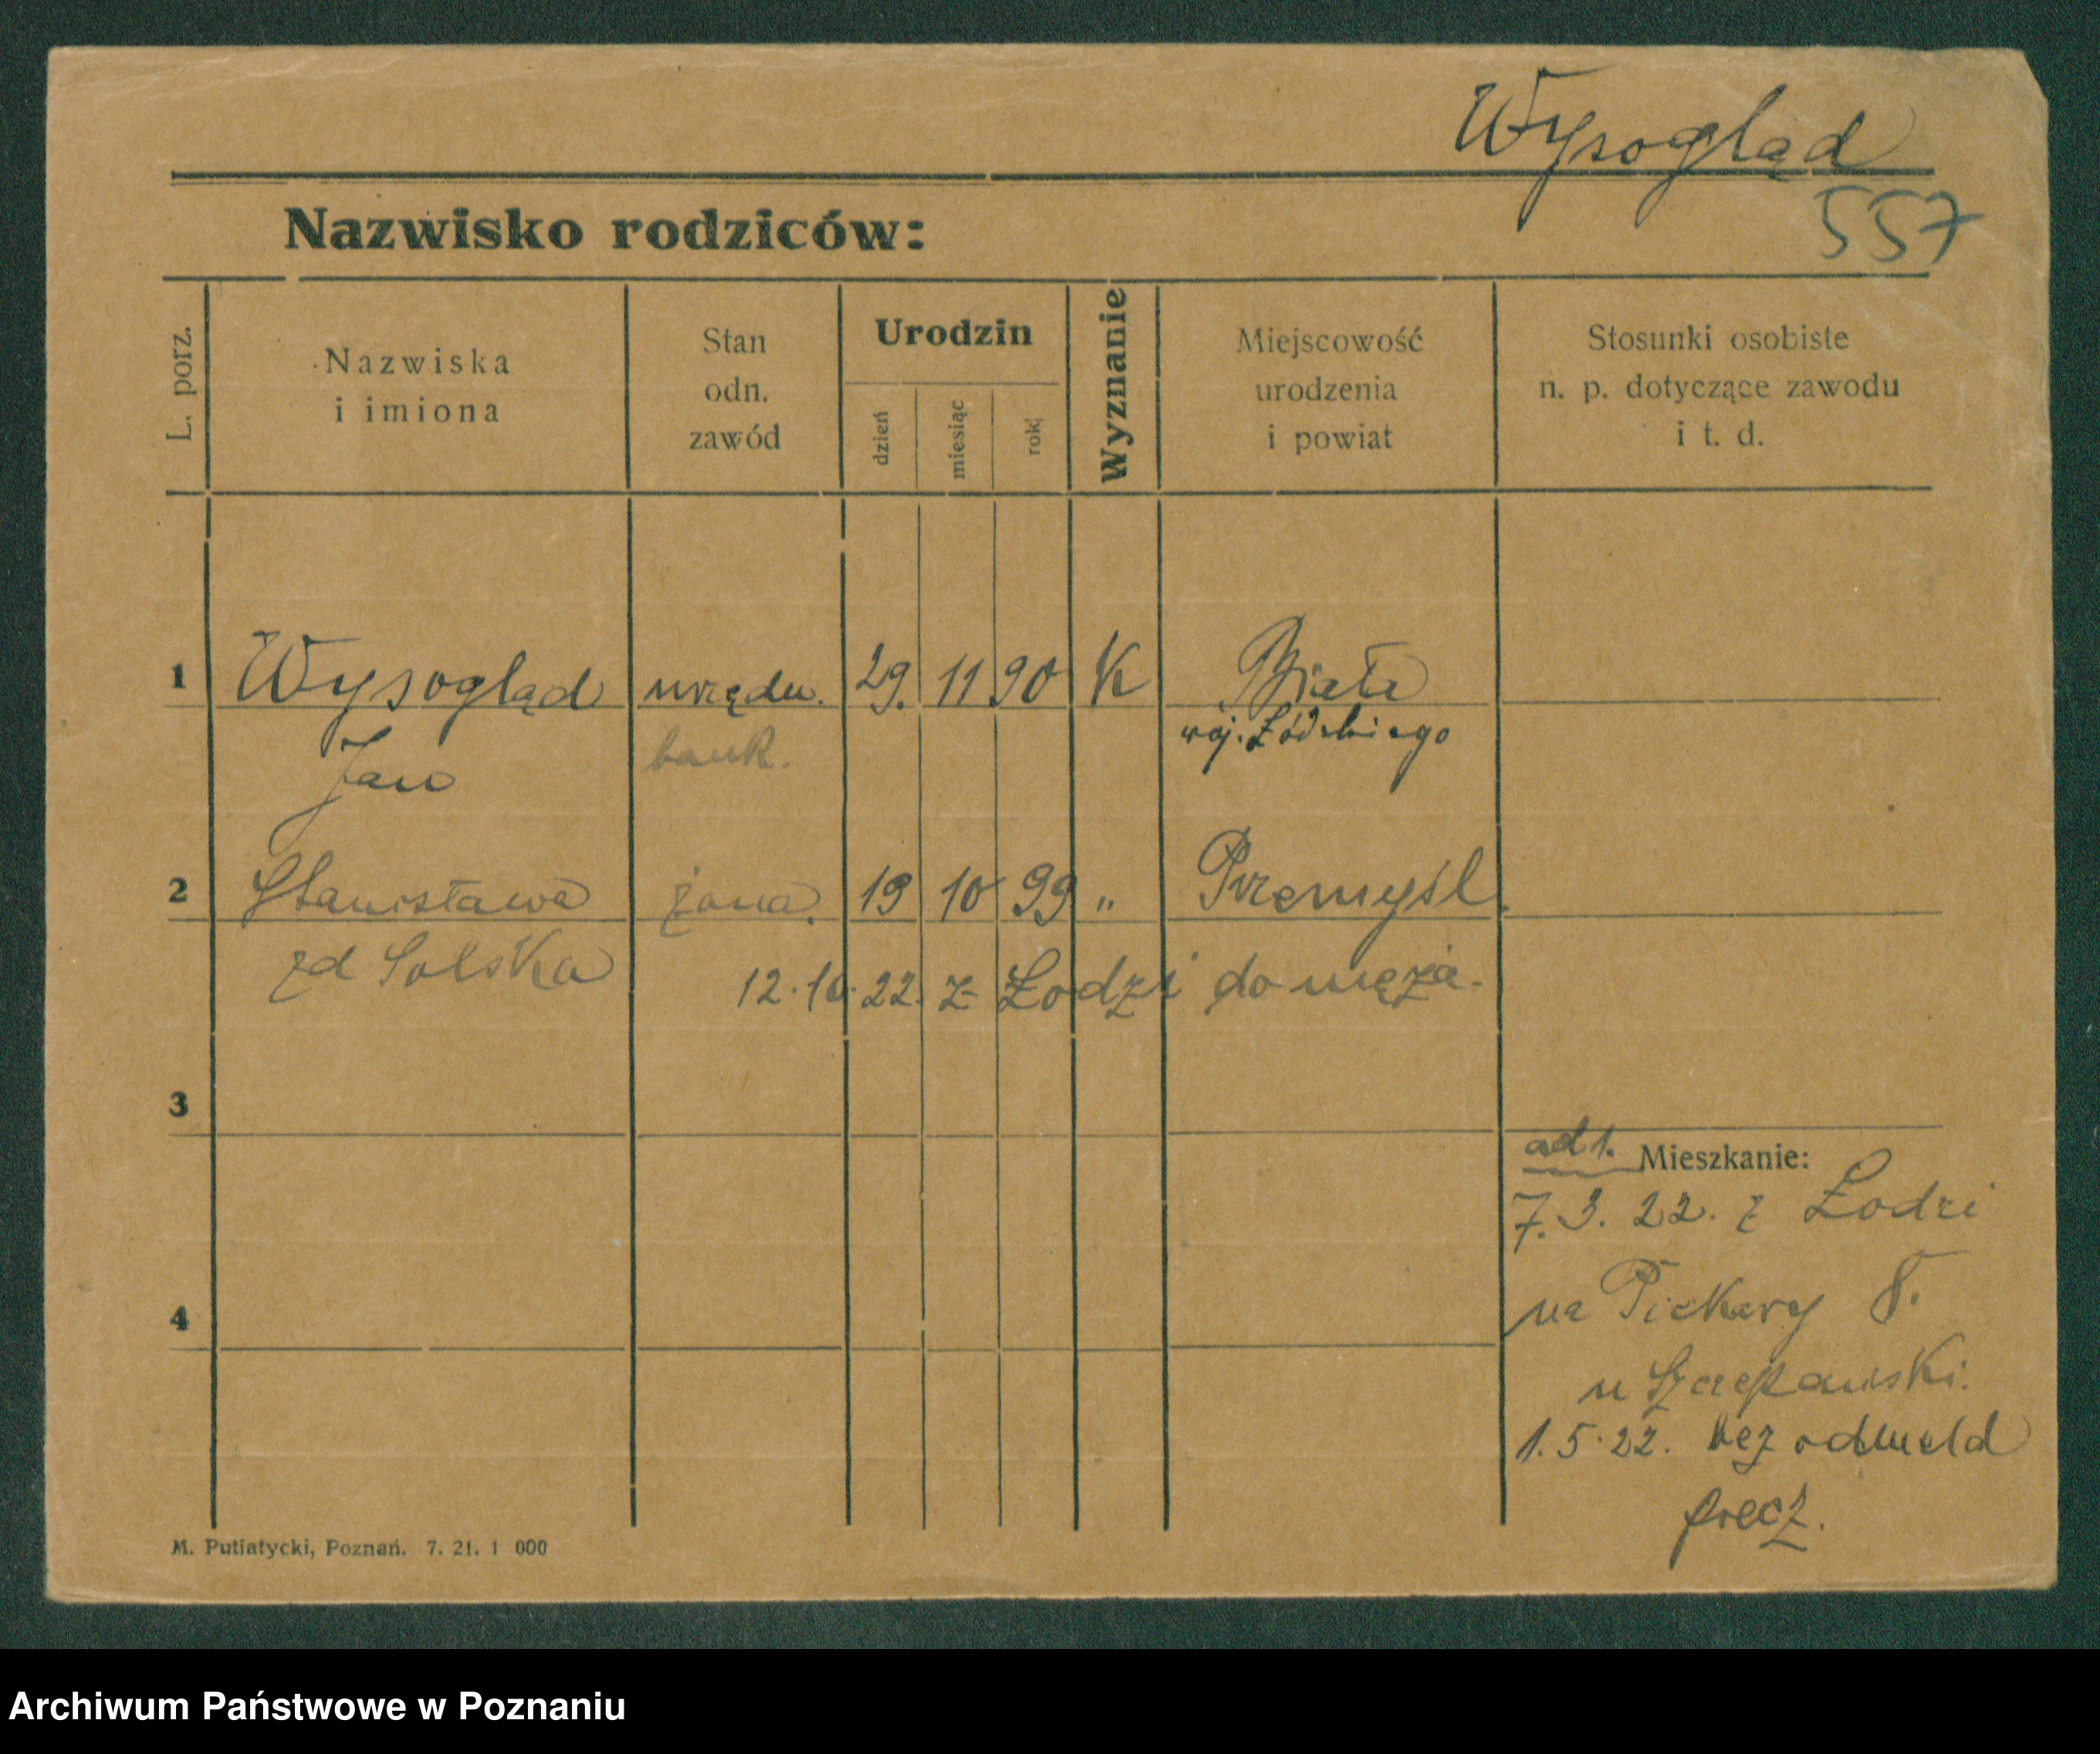 Wysogląd
557
Nazwisko rodziców:
L. porz.
Nazwiska
i imiona
Stan
odn.
zawód
Urodzin
dzień
miesiąc
rok
Wyznanie
Miejscowość
urodzenia
i powiat
Stosunki osobiste
n. p. dotyczące zawodu
i t. d.
1 Wysogląd urzędn. 29. 11 90 K Biała
Jan bank. woj. Łódzkiego
2 Stanisława żona. 19 10 99 „ Przemyśl.
zd Solska
12.10.22. z Łodzi do męża.
3
ad 1. Mieszkanie:
7.3.22. z Łodzi
4
na Piekary 8.
u Szczepański.
1.5.22. bez odmeld
precz.
M. Putiatycki, Poznań. 7. 21. 1 000
Archiwum Państwowe w Poznaniu